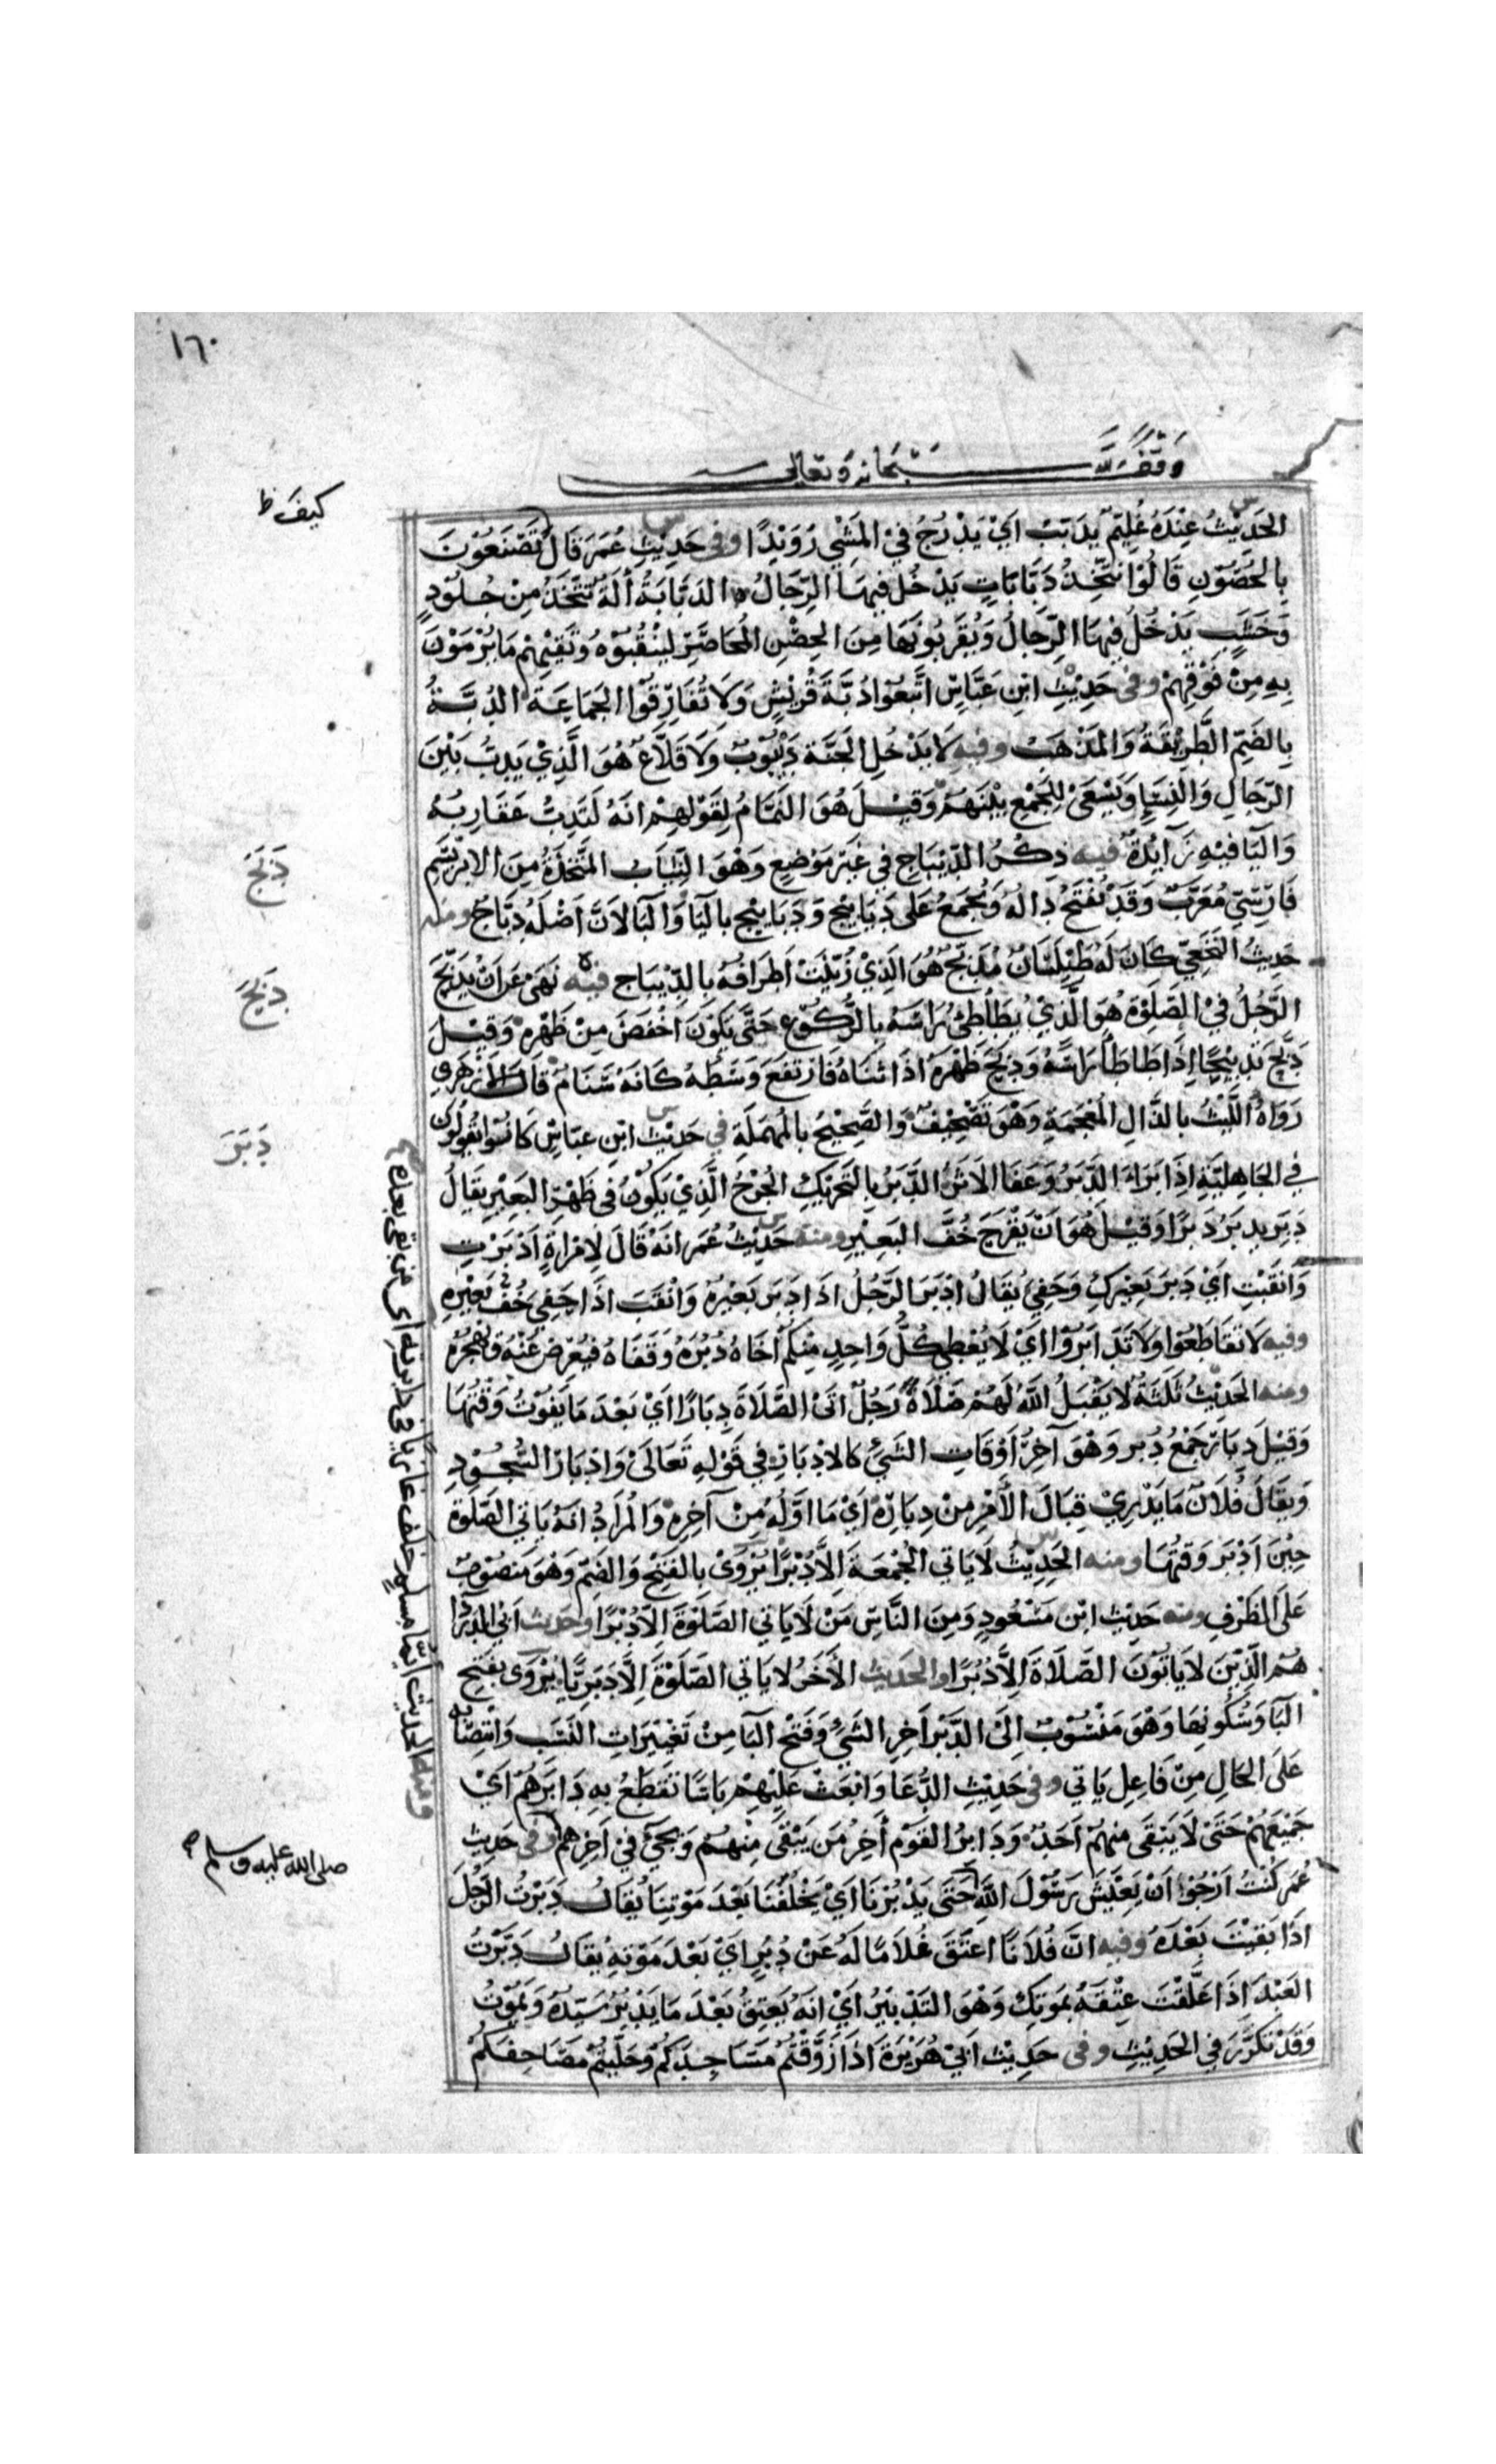 ١٦٠
وقف لله سبحانه وتعالى
كيف ظ
الحديث عنده غليم يدبب اي يدرج في المشي رويدا وفي حديث عمر قال تصنعون
بالحصون قالوا نتخذ دبابات يدخل فيها الرجال الدبابة آلة تتخذ من جلود
وخشب يدخل فيها الرجال ويقربونها من الحصن المحاصر لينقبوه وتقيهم ما يرمون
به من فوقهم وفي حديث ابن عباس اتبعوا دبة قريش ولا تفارقوا الجماعة الدبة
بالضم الطريقة والمذهب وفيه لا يدخل الجنة ديبوب ولا قلاع هو الذي يدب بين
الرجال والنساء ويسعى للجمع بينهم وقيل هو النمام لقولهم انه لتدب عقاربه
واليا فيه زآيدة فيه ذكر الديباج في غير موضع وهو الثياب المتخذة من الابريسم
دبج
فارسي معرب وقد تفتح داله ويجمع على ديابيج ودبابيج باليا والبا لان اصله دباج ومنه
حديث النخعي كان له طيلسان مدبج هو الذي زينت اطرافه بالديباج فيه نهى عن ان يدبح
دبح
الرجل في الصلوة هو الذي يطاطئ راسه بالركوع حتى يكون اخفض من ظهره وقيل
دبح تدبيحا اذا طاطا راسه ودبح ظهره اذا ثناه فارتفع وسطه كانه سنام قال الازهري
رواه الليث بالذال المعجمة وهو تصحيف والصحيح بالمهملة في حديث ابن عباس كانوا يقولون
دبر
في الجاهلية اذا برا الدبر وعفا الاثر الدبر بالتحريك الجرح الذي يكون في ظهر البعير يقال
دبر يدبر دبرا وقيل هو ان يقرح خف البعير ومنه حديث عمر انه قال لامراة ادبرت
وانقبت اي دبر بعيرك وحفي يقال ادبر الرجل اذا دبر بعيره وانقب اذا حفي خف بعيره
وفيه لا تقاطعوا ولا تدابروا اي لا يعطي كل واحد منكم اخاه دبره وقفاه فيعرض عنه ويهجره
ومنه الحديث ثلثة لا يقبل الله لهم صلاة رجل اتى الصلاة دبارا اي بعد ما يفوت وقتها
وقيل دبار جمع دبر وهو آخر اوقات الشيء كالادبار في قوله تعالى وادبار السجود
ويقال فلان ما يدري قبال الامر من دباره اي ما اوله من آخره والمراد انه ياتي الصلوة
حين ادبر وقتها ومنه الحديث لا ياتي الجمعة الا دبرا يروى بالفتح والضم وهو منصوب
على الظرف ومنه حديث ابن مسعود ومن الناس من لا ياتي الصلوة الا دبرا وحديث ابي الدردا
هم الذين لا ياتون الصلاة الا دبرا والحديث الآخر لا ياتي الصلوة الا دبريا يروى بفتح
البا وسكونها وهو منسوب الى الدبر آخر الشيء وفتح البا من تغييرات النسب وانتصابه
على الحال من فاعل ياتي وفي حديث الدعا وابعث عليهم باسا تقطع به دابرهم اي
جميعهم حتى لا يبقى منهم احد ودابر القوم آخر من يبقى منهم ويجيء في آخرهم وفي حديث
عمر كنت ارجوا ان يعيش رسول الله حتى يدبرنا اي يخلفنا بعد موتنا يقال دبرت الرجل
صلى الله عليه وسلم
اذا بقيت بعده وفيه ان فلانا اعتق غلاما له عن دبر اي بعد موته يقال دبرت
العبد اذا علقت عتقه بموتك وهو التدبير اي انه يعتق بعد ما يدبره سيده ويموت
وقد تكرر في الحديث وفي حديث ابي هريرة اذا زوقتم مساجدكم وحليتم مصاحفكم
ومنه الحديث ايما مسلم خلف غازيا في دابرته اي من بقي بعده